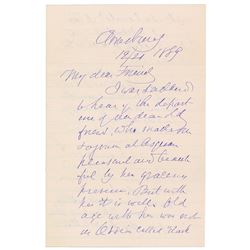 Amesbury
12/21 1889
My dear Friend
I was saddened
to hear of the depart-
ure of the dear old
friend, who made her
sojourn at
pleasant and beauti-
ful by her gracious
presence. But with
her it is well. Old
age with her was not
as Ossian called "dark